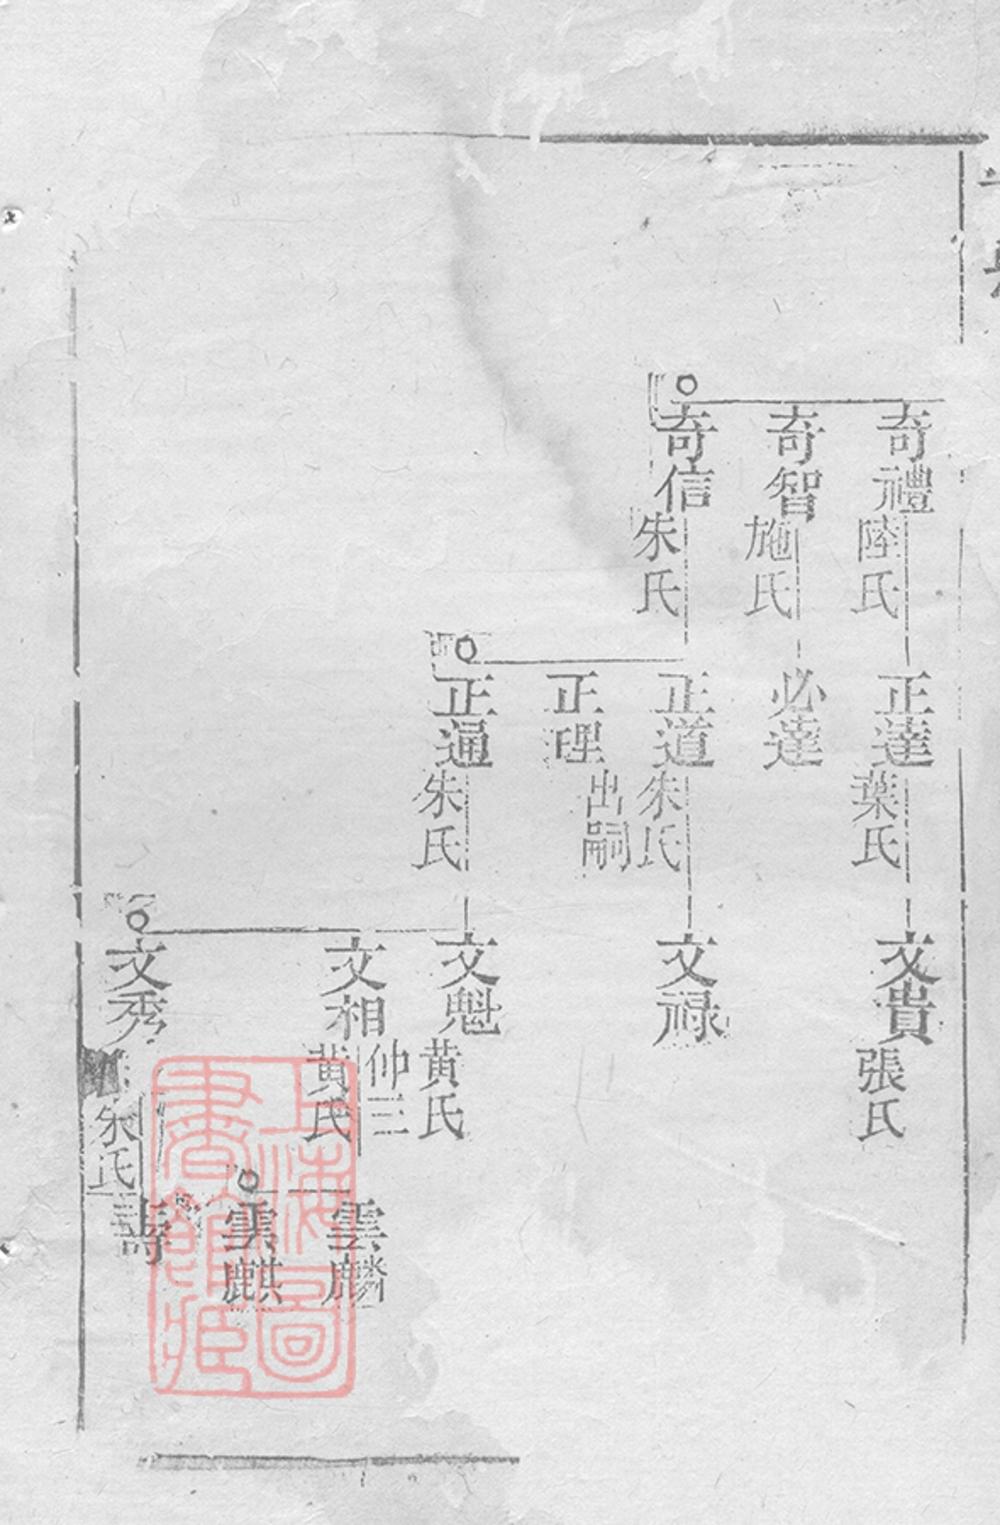 奇禮
陸氏
奇智
施氏
奇信
朱氏
正達
葉氏
必達
正道
朱氏
正理
出嗣
正通
朱氏
文貴
張氏
文祿
文魁
黃氏
文相
仲三
黃氏
文秀
朱氏
雲麟
雲麒
壽
上海圖書館藏